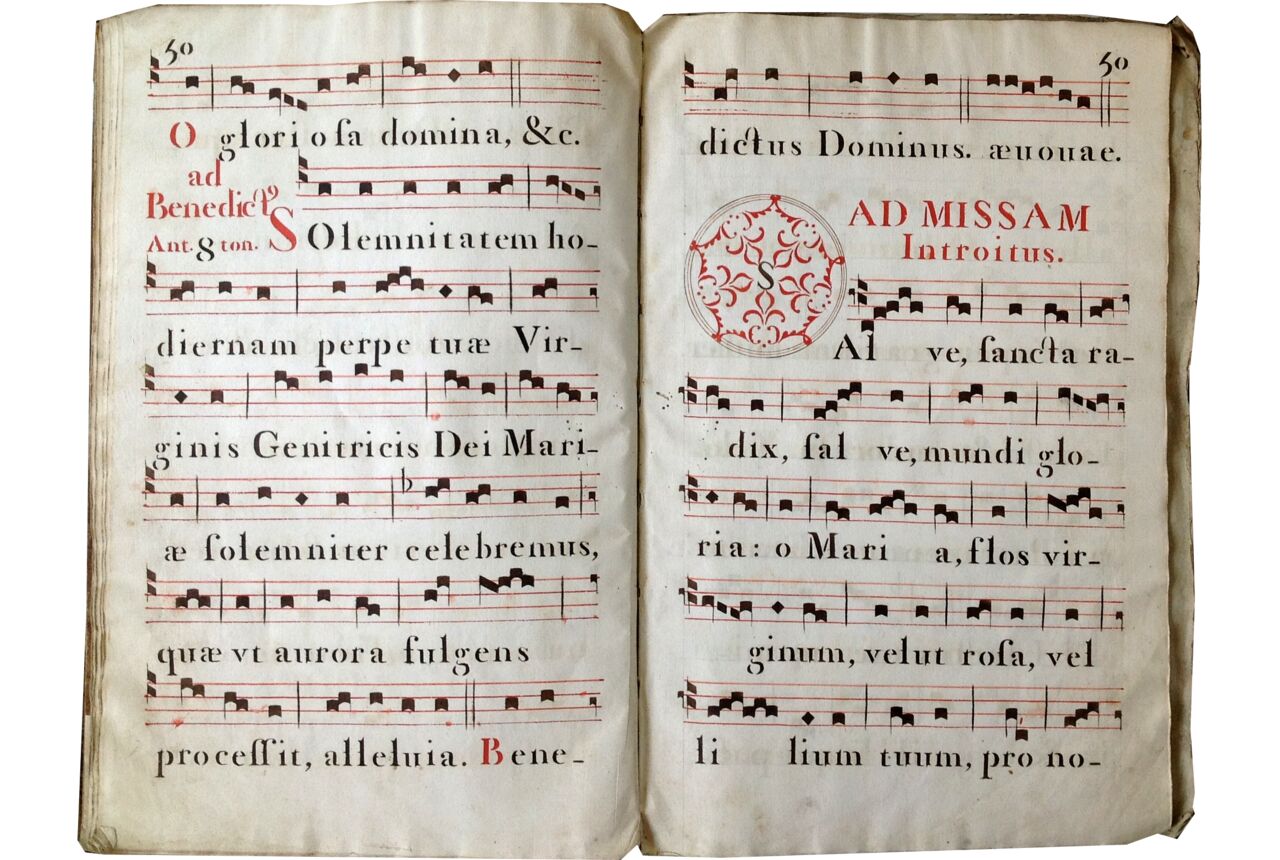 50
O gloriosa domina, &c.
ad
Benedictꝰ
Ant. 8 ton. SOlemnitatem ho-
diernam perpetuæ Vir-
ginis Genitricis Dei Mari-
æ ſolemniter celebremus,
quæ vt aurora fulgens
proceſſit, alleluia. Bene-
50
dictus Dominus. æuouae.
AD MISSAM
Introitus.
SAlve, ſancta ra-
dix, ſalve, mundi glo-
ria: o Maria, flos vir-
ginum, velut roſa, vel
lilium tuum, pro no-